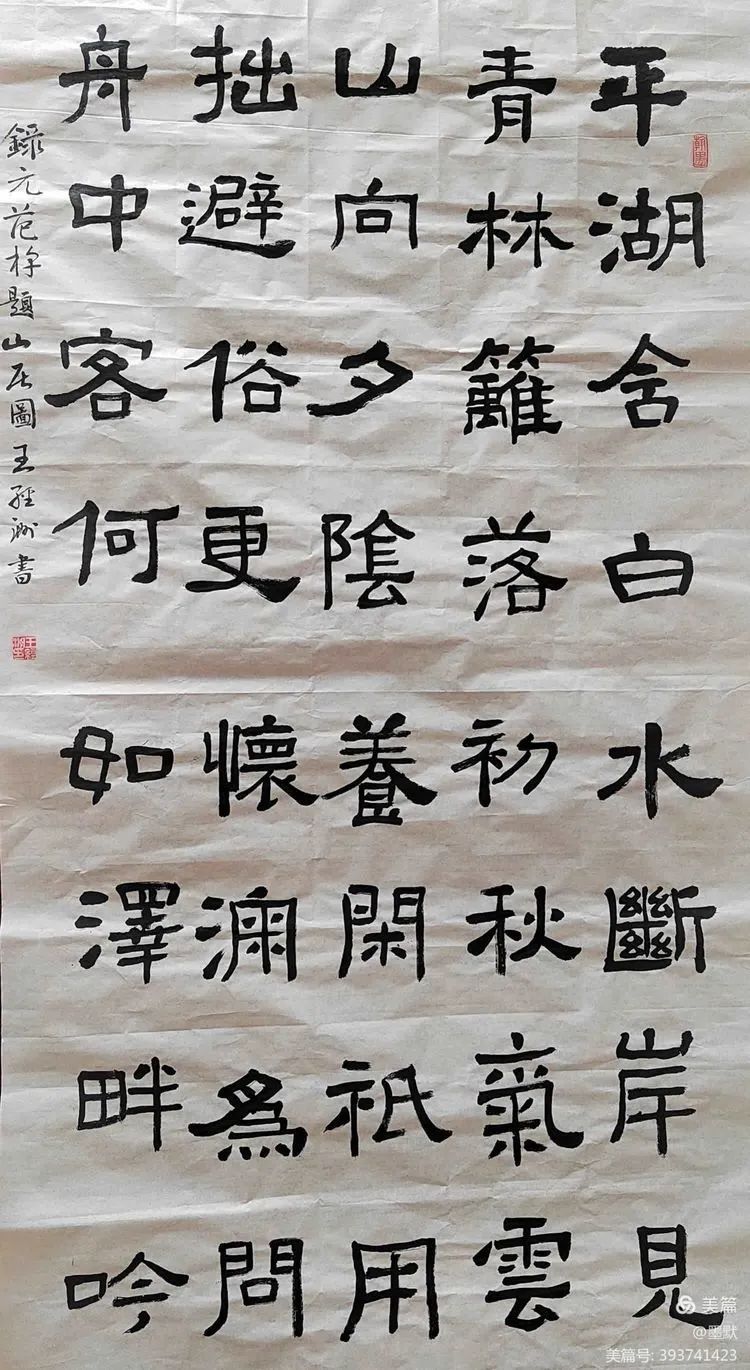 平湖含白水斷岸見
青林籬落初秋氣雲
山向夕陰養閑祇用
拙避俗更懷深為問
舟中客何如澤畔吟
錄元范梈題山居圖王書
美篇
@墨默
美篇号: 393741423